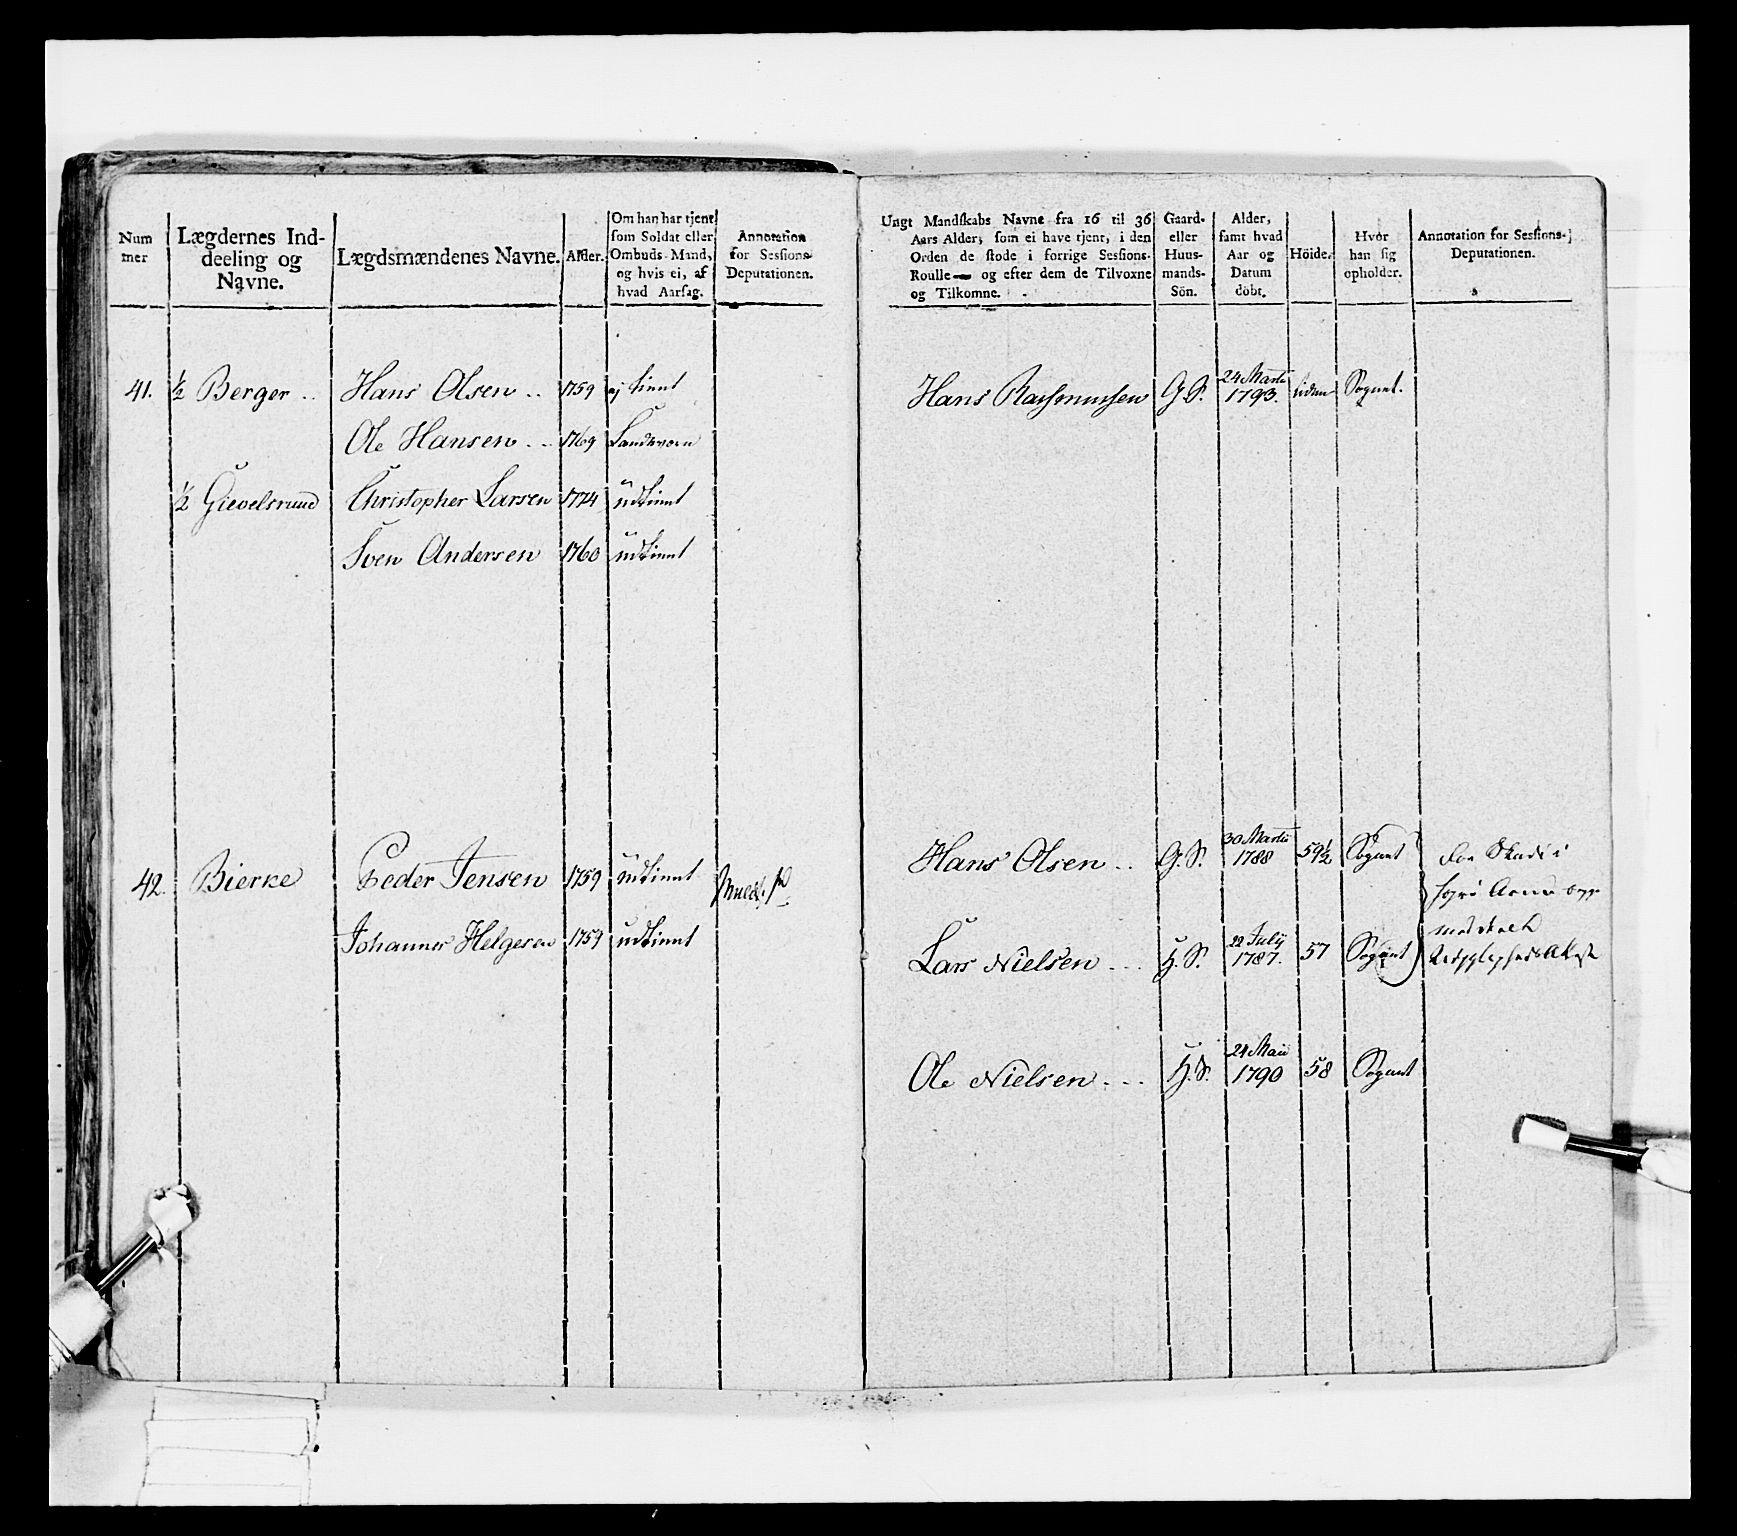 Num
mer
Lægdernes Ind-
deeling og
Navne.
Lægdsmændenes Navne.
Alder.
Om han har tjent
som Soldat eller
Ombuds-Mand,
og hvis ei, af
hvad Aarsag.
Annotation
for Sessions-
Deputationen.
Ungt Mandskabs Navne fra 16 til 36
Aars Alder, som ei have tjent, i den
Orden de stode i forrige Sessions-
Roulle — og efter dem de Tilvoxne
og Tilkomne.
Gaard-
eller
Huus-
mands-
Sön.
Alder,
samt hvad
Aar og
Datum
döbt.
Höide.
Hvor
han sig
opholder.
Annotation for Sessions-
Deputationen.
41. ½ Berger .. Hans Olsen .. 1759 ej tient
Ole Hansen .. 1769 Landevorn
½ Gievelsruud Christopher Larsen 1774 udtient
Sven Andersen 1760 udtient
42. Bierke Peder Jensen 1759 udtient
Johannes Helgesen 1759 udtient
Hans Rasmussen G. S. 24 Martii 1793. liden Sognet.
Hans Olsen .. G. S. 30 Martii 1788 59½ Sognet
Lars Nielsen ... H. S. 22 July 1787. 57 Sognet
Ole Nielsen ... H. S. 24 Maii 1790 58 Sognet